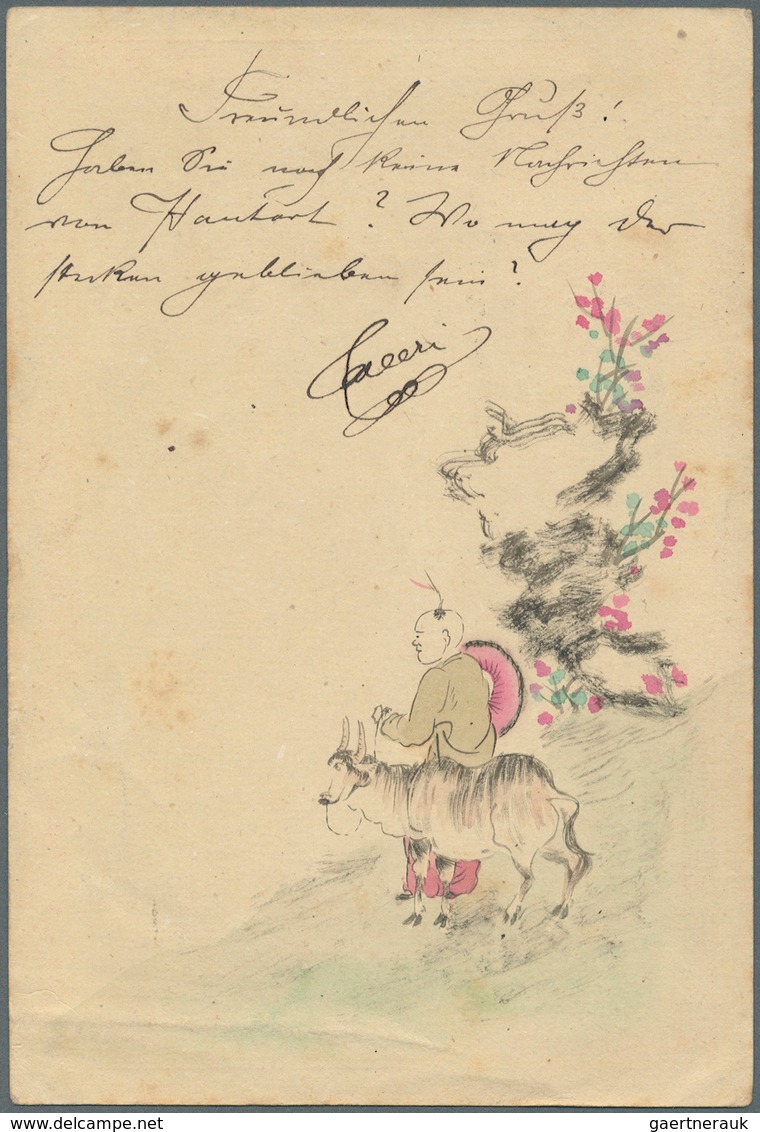 Freundlichen Gruß!
Haben Sie noch keine Nachrichten
von ? Wo mag der
stecken geblieben sein?
gaertnerauk
delcampe.net